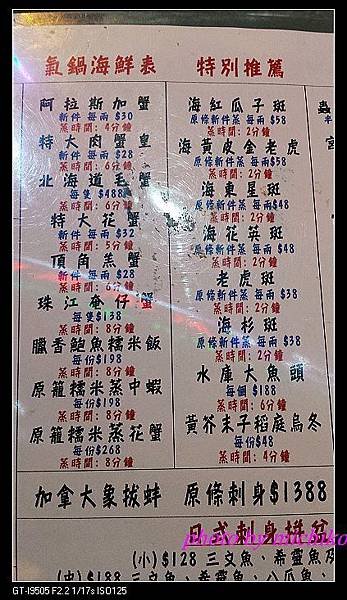 氣鍋海鮮表
阿拉斯加蟹
新件 每兩 $30
蒸時間: 4分鐘
特大肉蟹皇
新件 每兩 $28
蒸時間: 6分鐘
北海道毛蟹
每隻 $488
蒸時間: 6分鐘
特大花蟹
新件 每兩 $32
蒸時間: 5分鐘
頂角羔蟹
新件 每兩 $28
蒸時間: 6分鐘
珠江奄仔蟹
每隻$138
蒸時間: 8分鐘
臘香鮑魚糯米飯
每份$198
蒸時間: 8分鐘
原籠糯米蒸中蝦
每份$198
蒸時間: 8分鐘
原籠糯米蒸花蟹
每份$268
蒸時間: 8分鐘
特別推薦
海紅瓜子斑
原條新件蒸 每兩 $58
蒸時間: 2分鐘
海黃皮金老虎
原條新件蒸 每兩$58
蒸時間: 2分鐘
海東星斑
原條新件蒸 每兩$48
蒸時間: 2分鐘
海花英斑
原條新件蒸 每兩$48
蒸時間: 2分鐘
老虎斑
原條新件蒸 每兩 $38
蒸時間: 2分鐘
海杉斑
原條新件蒸 每兩$38
蒸時間: 2分鐘
水庫大魚頭
每個 $188
蒸時間: 6分鐘
黃芥末子稻庭烏冬
每份$48
蒸時間: 4分鐘
加拿大象拔蚌 原條刺身$1388
日式刺身拼盆
photo by michiko
(小) $128 三文魚、希靈魚及
(中) $188 三文魚、希靈魚、八爪魚、
GT-I9505 F2.2 1/17s ISO125